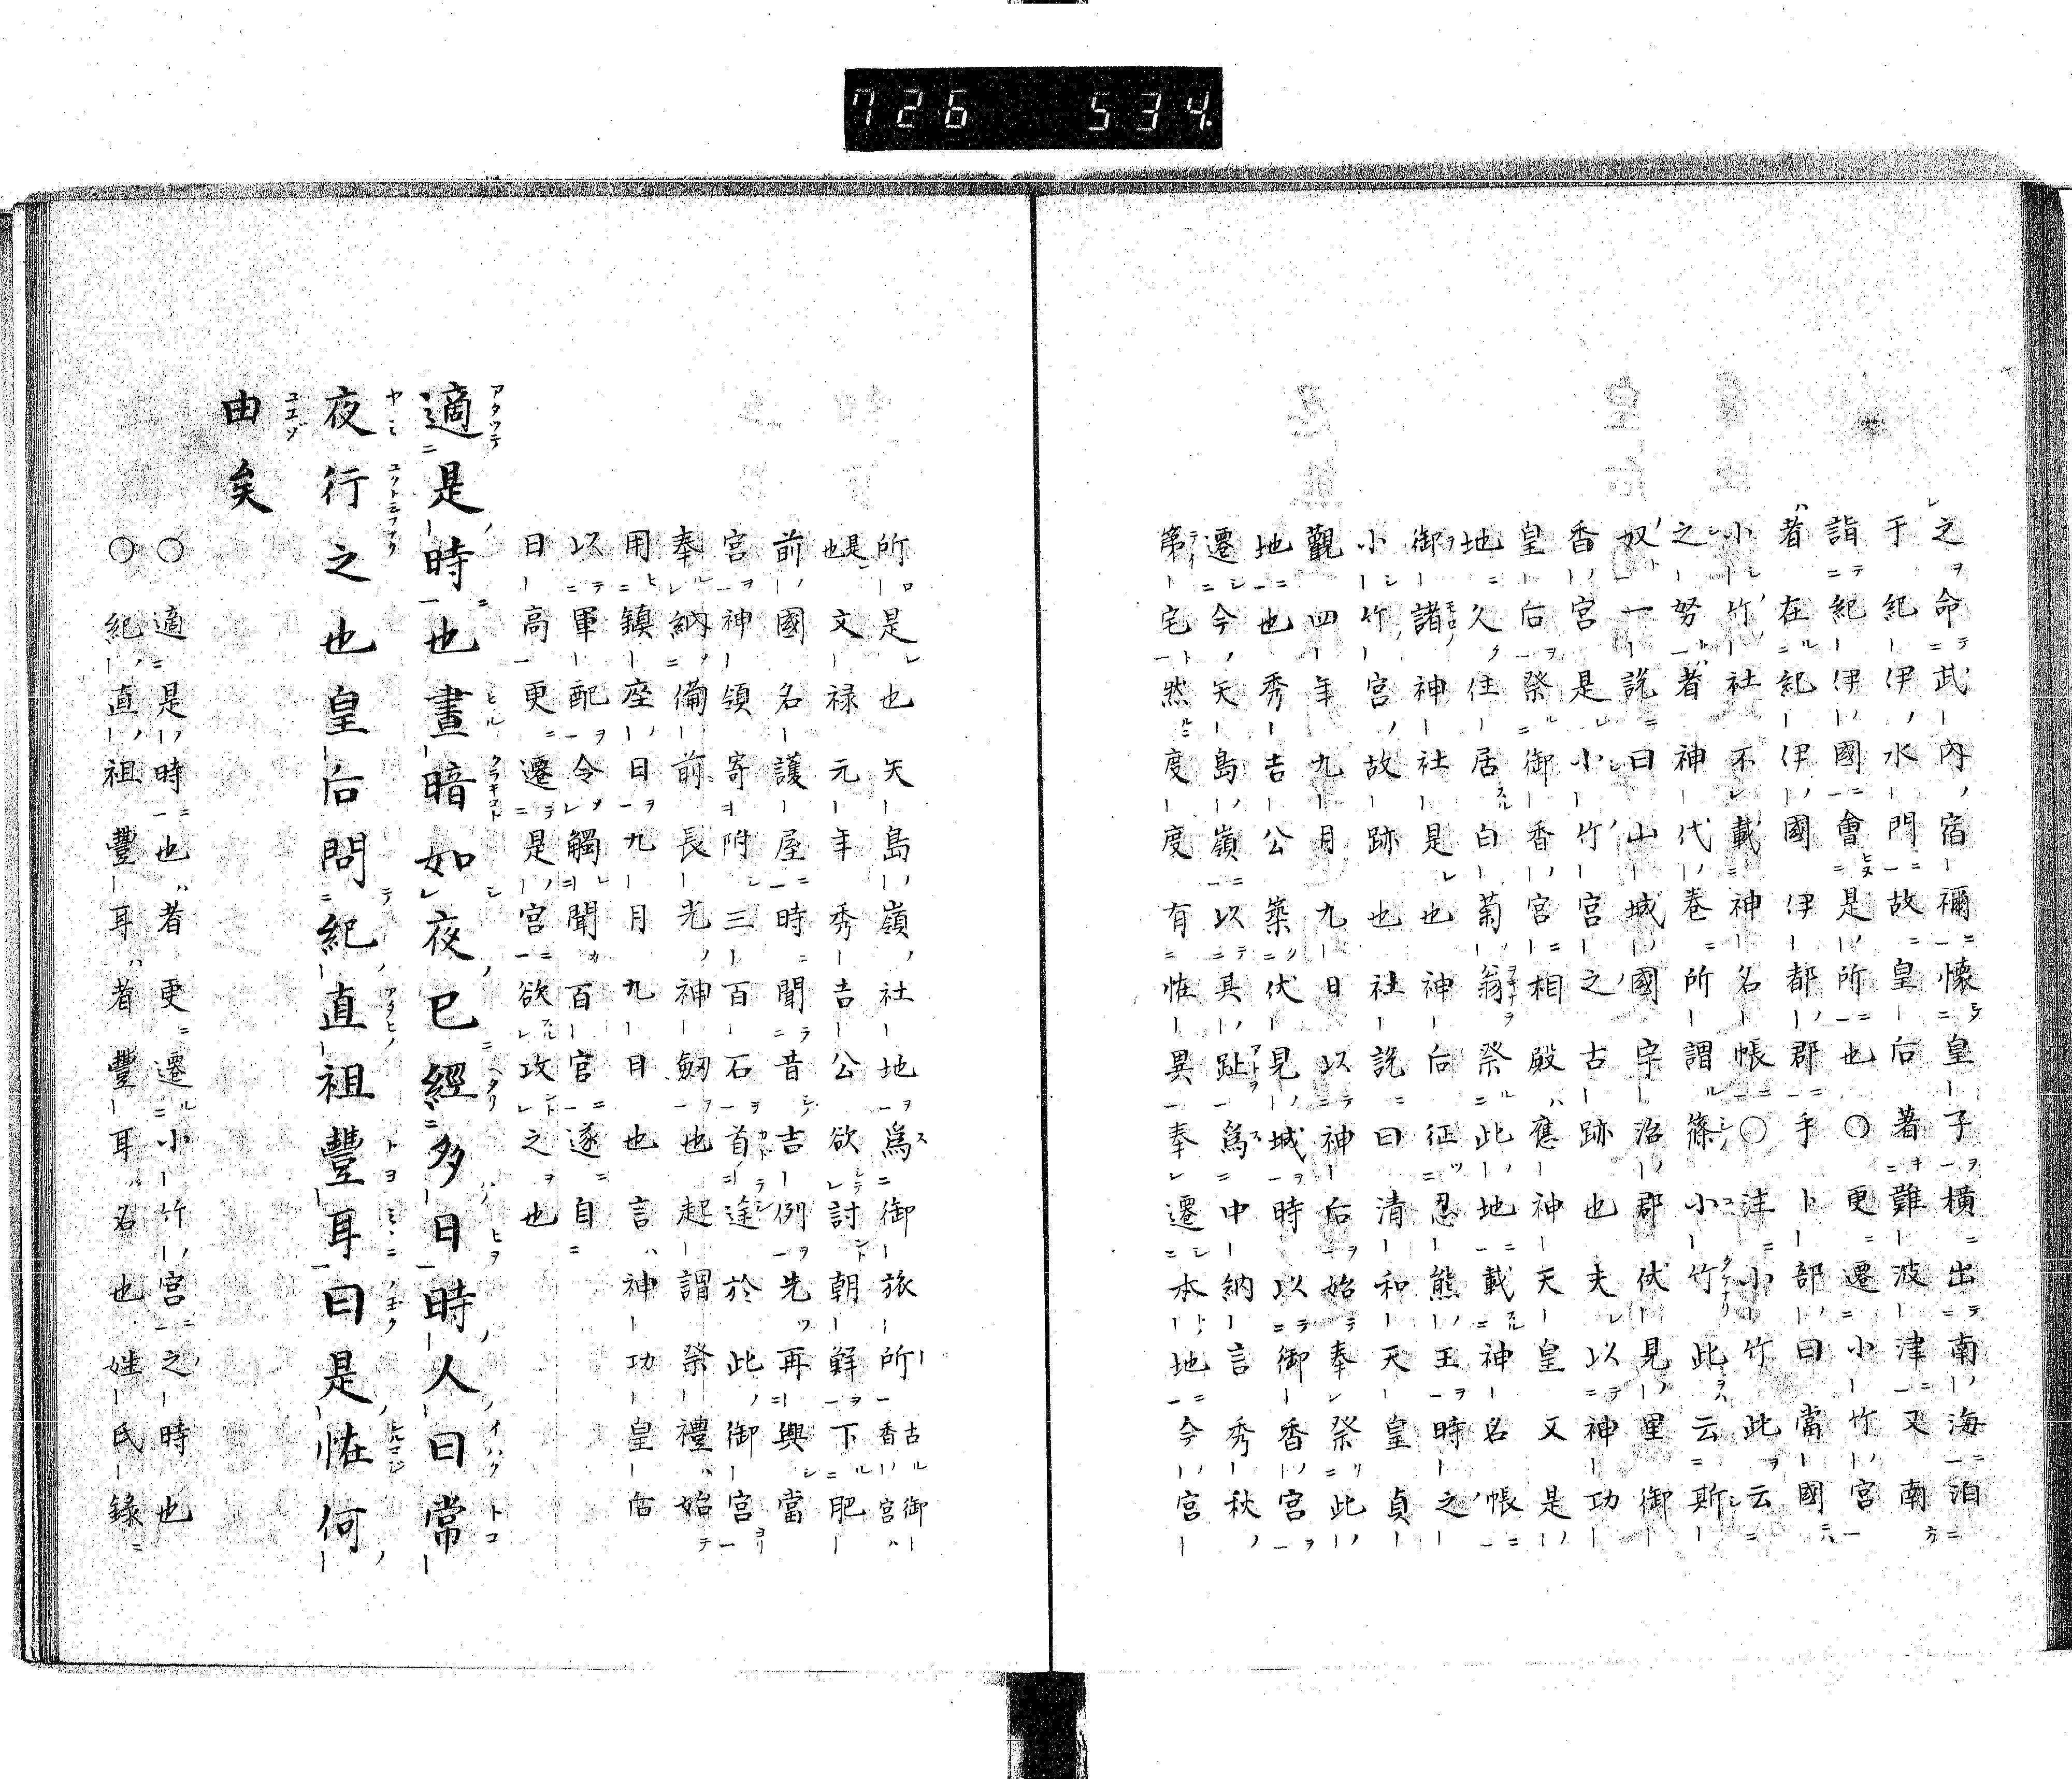 726 534.
之命武內宿禰懷皇子橫出南海泊
于紀伊水門故皇后著難波津又南
詣紀伊國會是所也〇更遷小竹宮
者在紀伊國伊都郡手卜部曰當國
小竹社不載神名帳〇注小竹此云
之努者神代卷所謂篠小竹此云斯
奴一說曰山城國宇治郡伏見里御
香宮是小竹宮之古跡也夫以神功
皇后祭御香宮相殿應神天皇又是
地久住居白菊翁祭此地載神名帳
御諸神社是也神后征忍熊王時之
小竹宮故跡也社說曰清和天皇貞
觀四年九月九日以神后始奉祭此
地也秀吉公築伏見城時以御香宮
遷今矢島嶺以其趾爲中納言秀秋
第宅然度度有恠異奉遷本地今宮
所是也矢島嶺社地爲御旅所古御香宮
是也文禄元年秀吉公欲討朝鮮下肥
前國名護屋時聞昔吉例先再興當
宮神領寄附三百石首途於此御宮
奉納備前長光神劒也起謂祭禮始
用鎮座日九月九日也言神功皇后
以軍配令觸聞百官遂自
日高更遷是宮欲攻之也
適是時也晝暗如夜已經多日時人曰常
夜行之也皇后問紀直祖豐耳曰是恠何
由矣
〇適是時也者更遷小竹宮之時也
〇紀直祖豐耳者豐耳名也姓氏錄